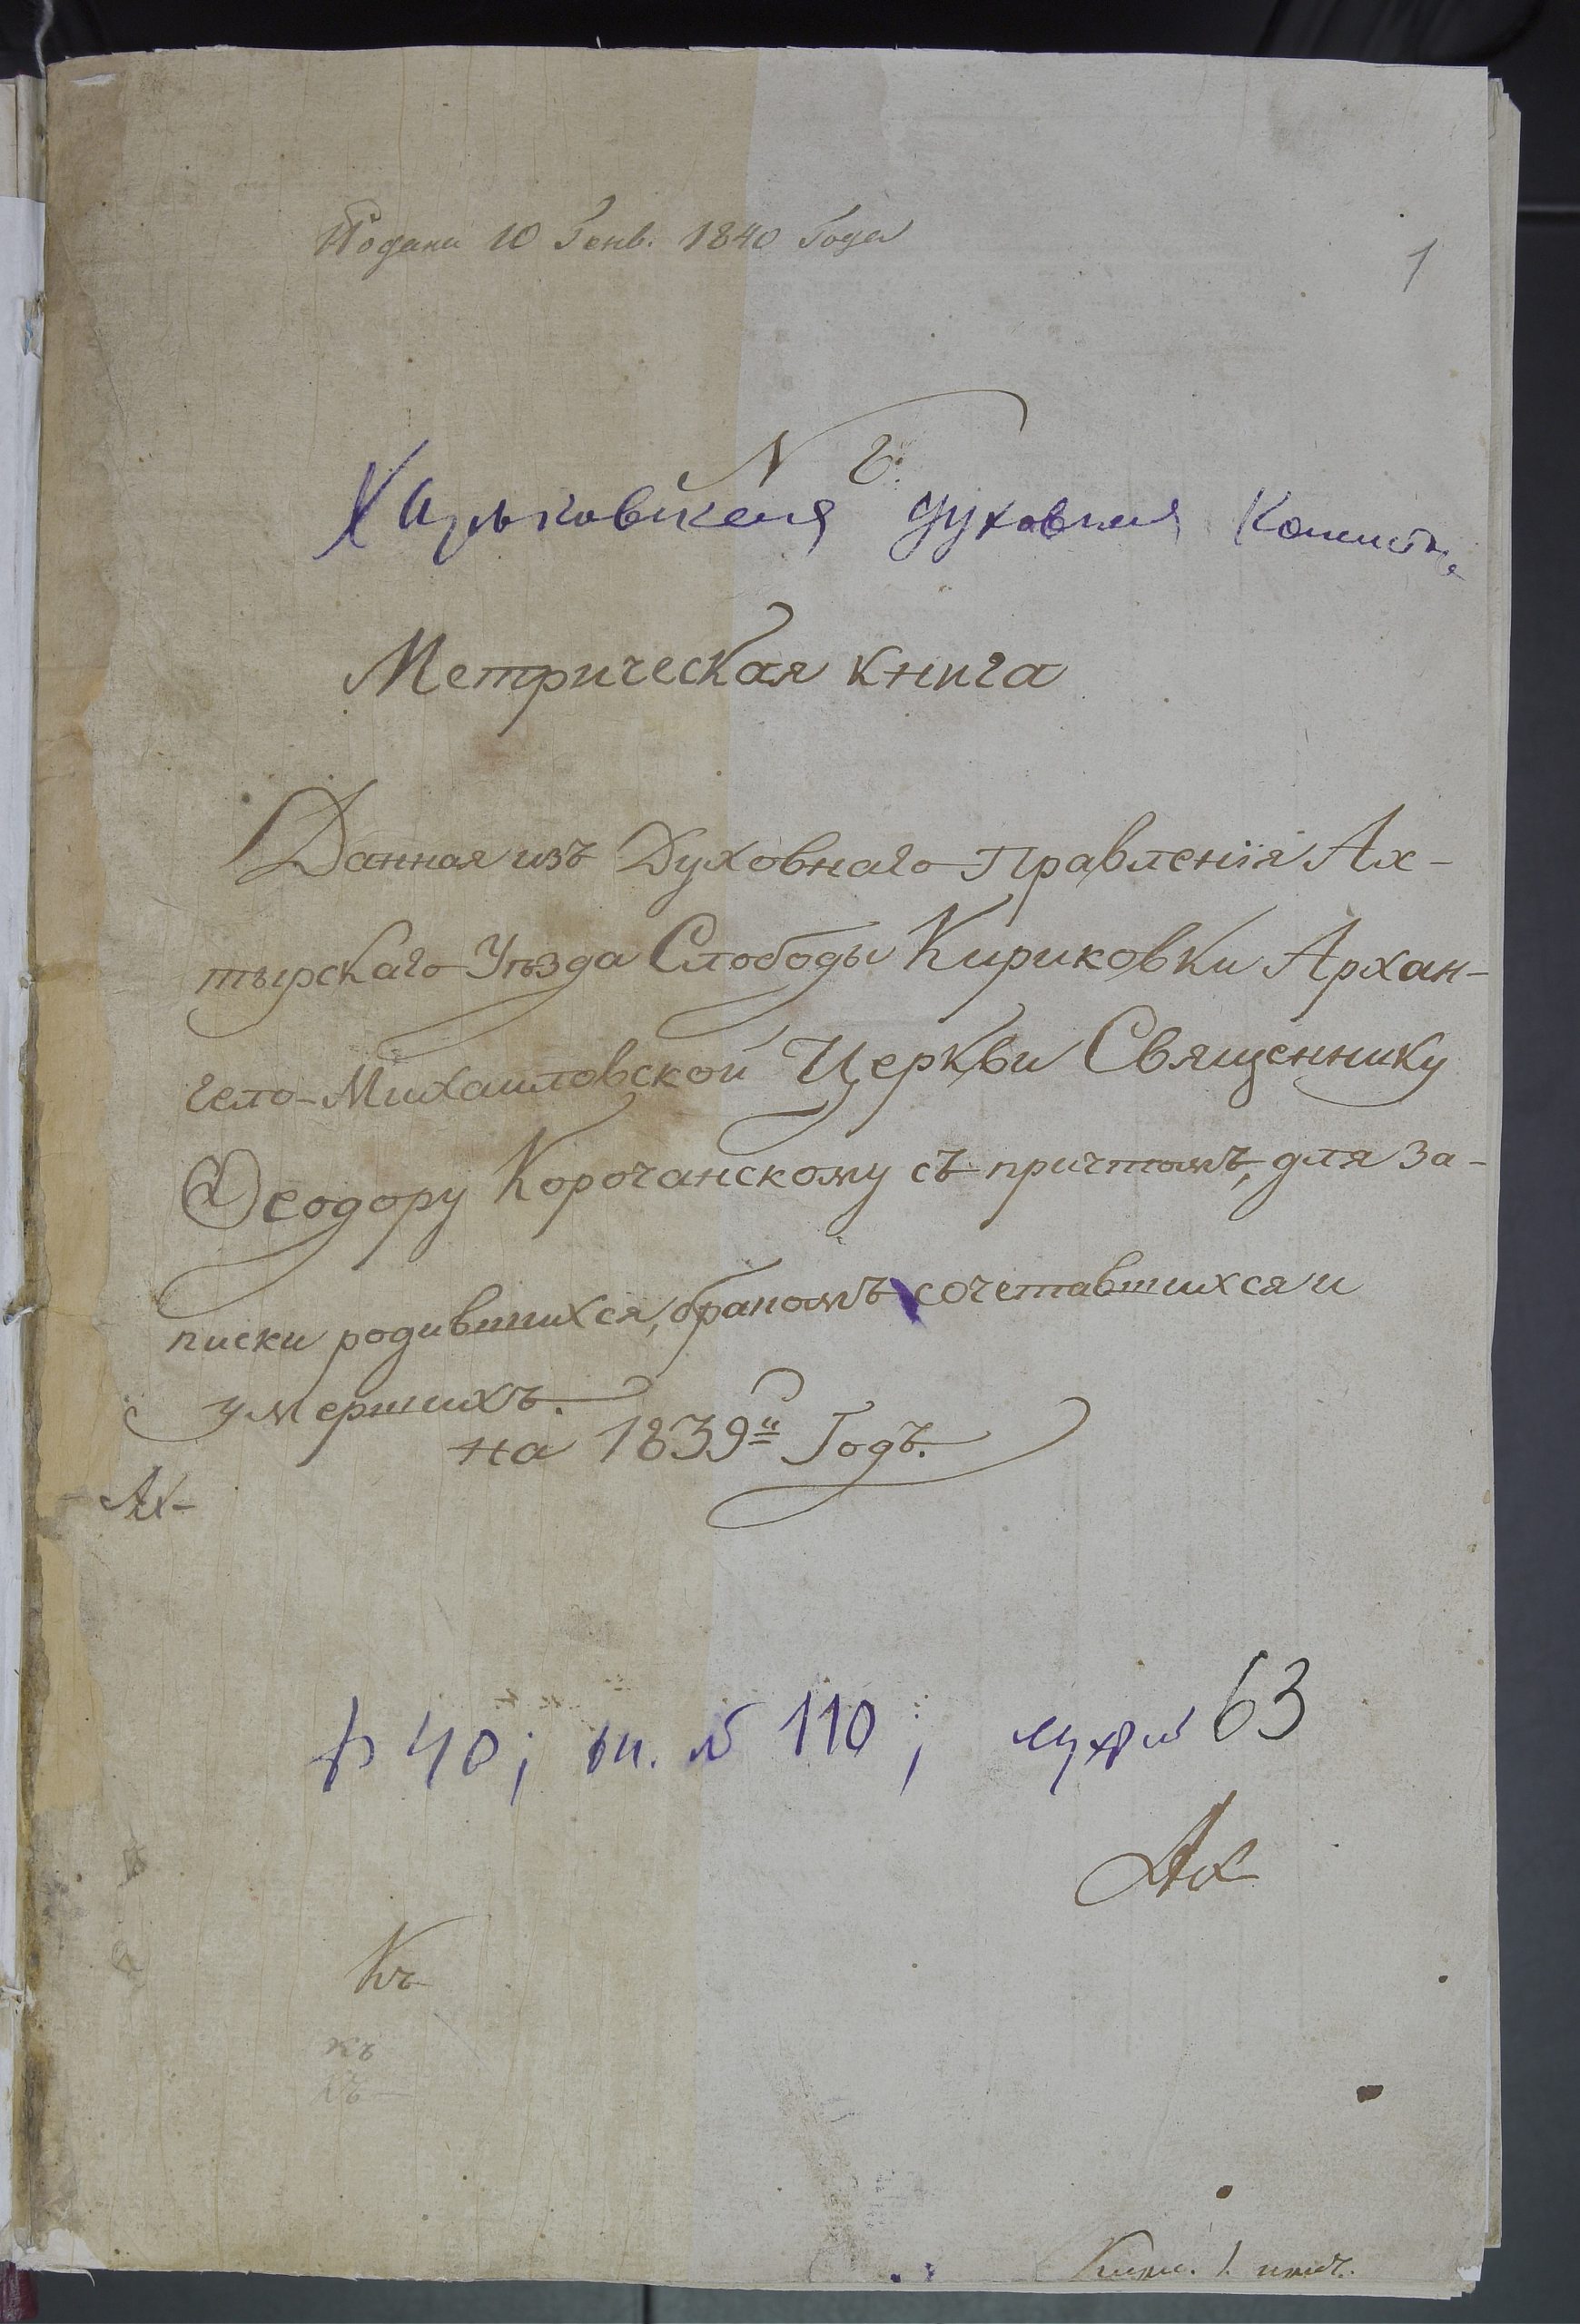 Подана 10 Генв. 1840 Года
1
N 6.
Харьковская духовная Консист.
Метрическая книга
Данная изъ Духовнаго Правленія Ах-
тырскаго Уѣзда Слободы Кириковки Архан-
гело-Михаиловской Церкви Священнику
Ѳеодору Корочанскому съ причтомъ, для за-
писки родившихся, бракомъ сочетавшихся и
умершихъ.
на 1839й Годъ.
Ах-
40; 110; 63
Ах
Къ
къ